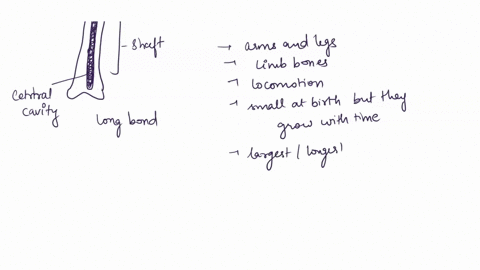 shaft
Central
cavity
long bond
→ arms and legs
→ Limb bones
→ locomotion
→ small at birth but they
grow with time
→ largest / longes